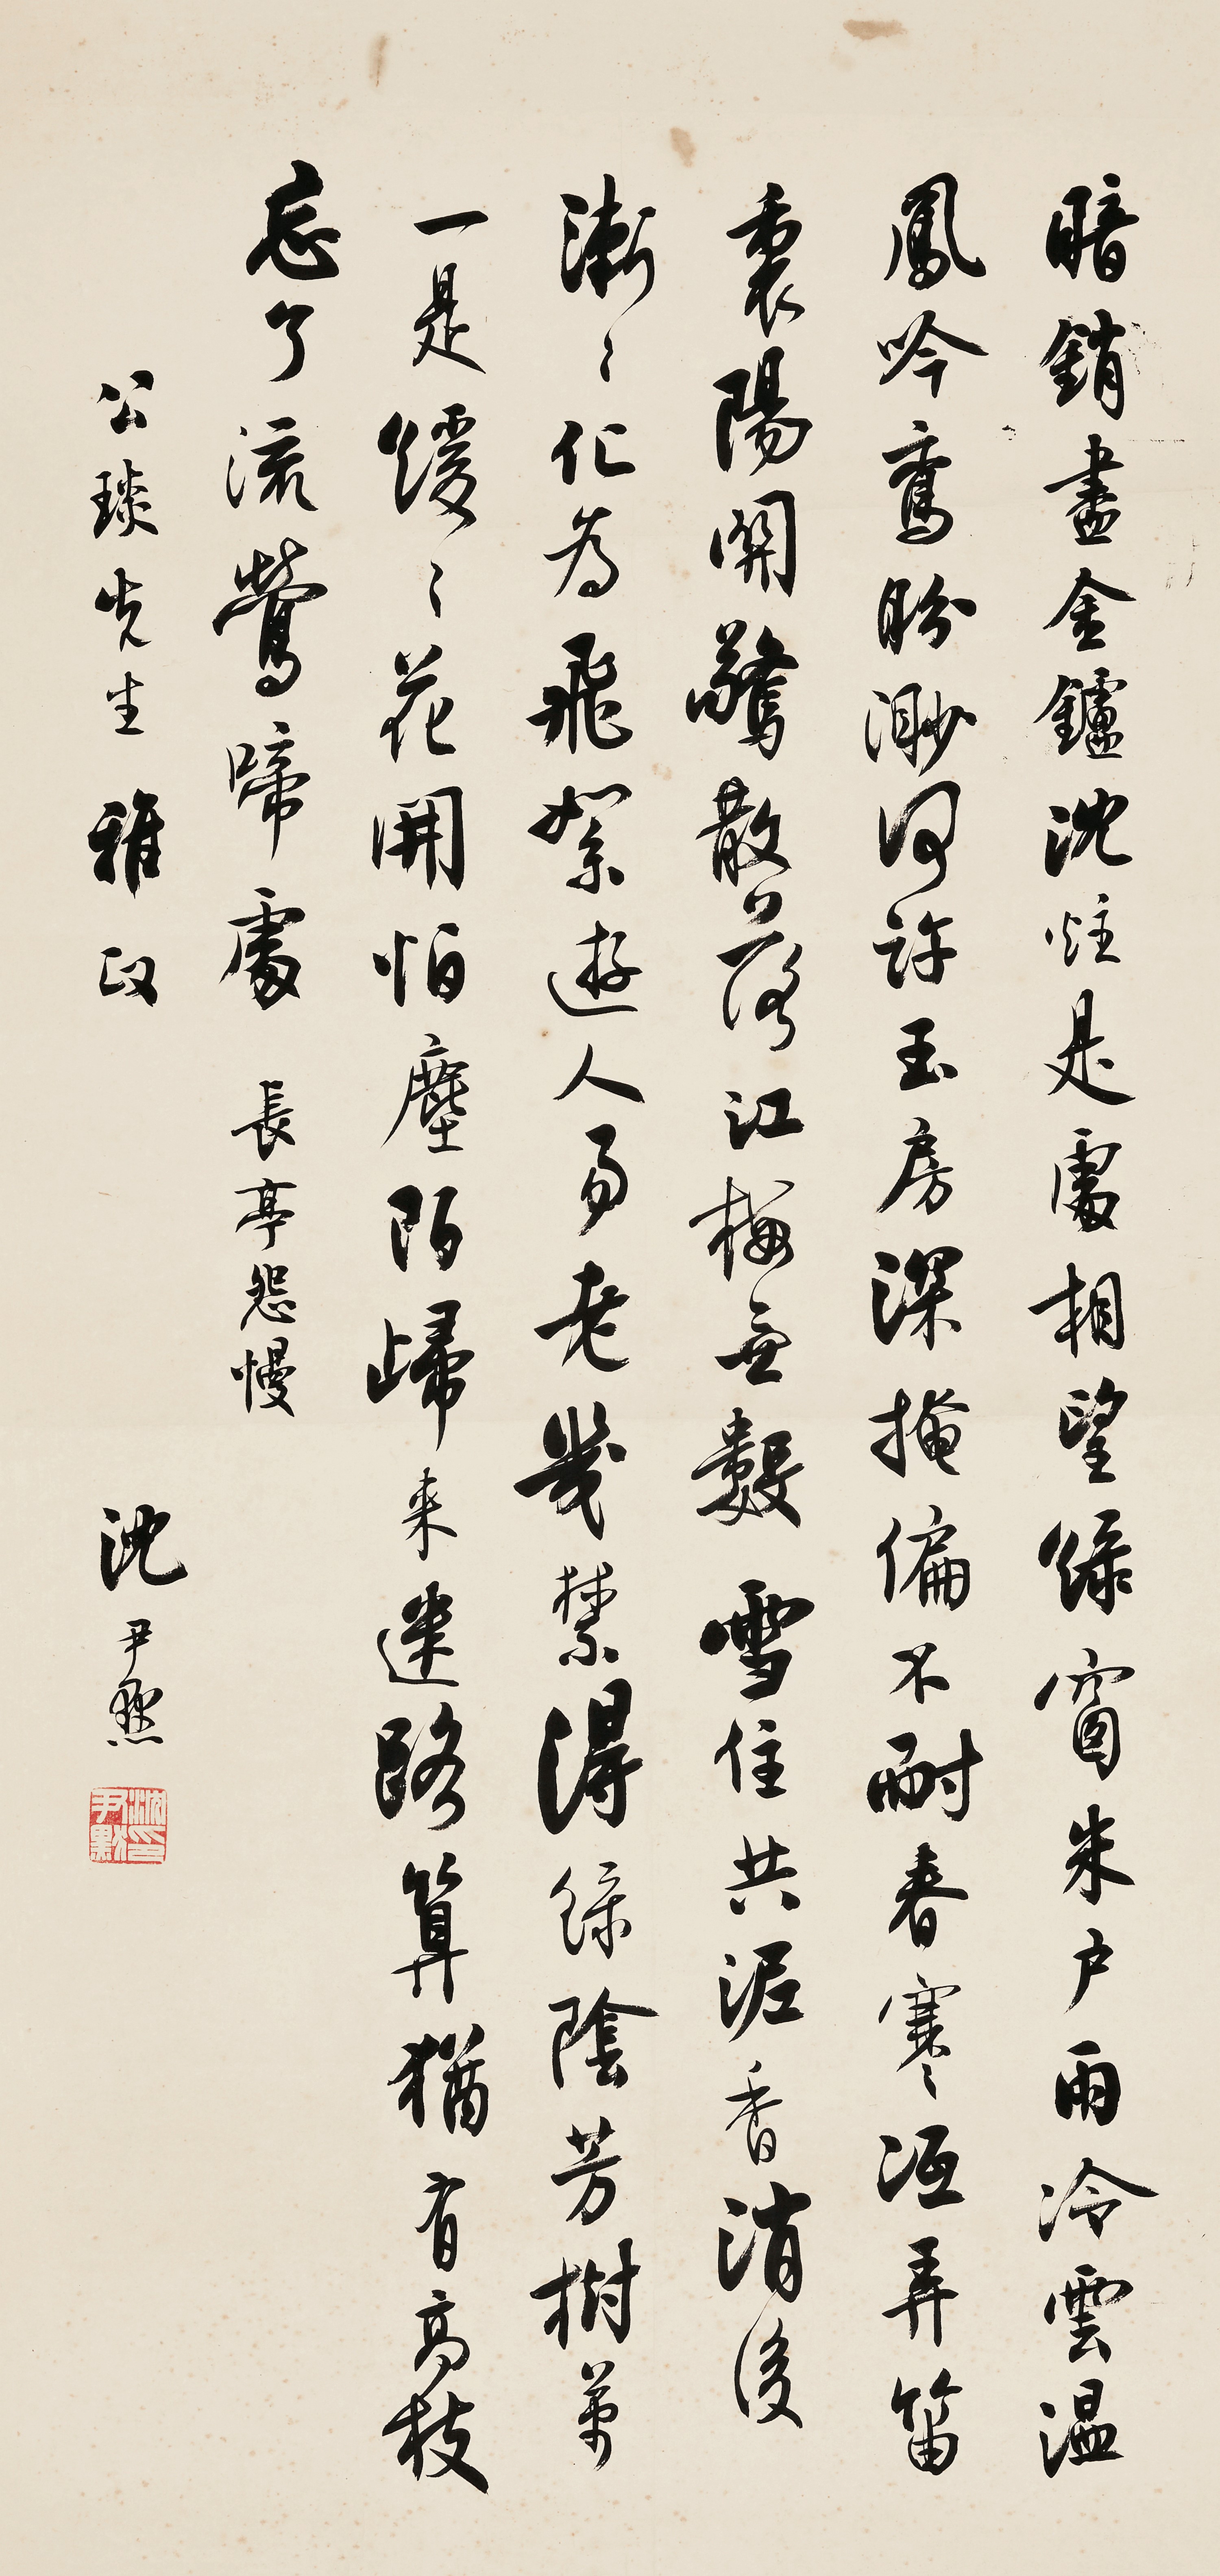 暗銷盡金鑪沈炷是處相望綠窗朱户雨冷雲溫
鳳吟鸞盼渺何許玉房深掩偏不耐春寒沍弄笛
裏陽關驚散落江梅無數雪住共泥香消後
漸〻化為飛絮遊人易老幾禁得綠陰芳樹萬
一是緩〻花開怕塵陌歸來迷路算猶有高枝
忘了流鶯啼處 長亭怨慢
公琰先生 雅政
沈尹默
沈尹默印